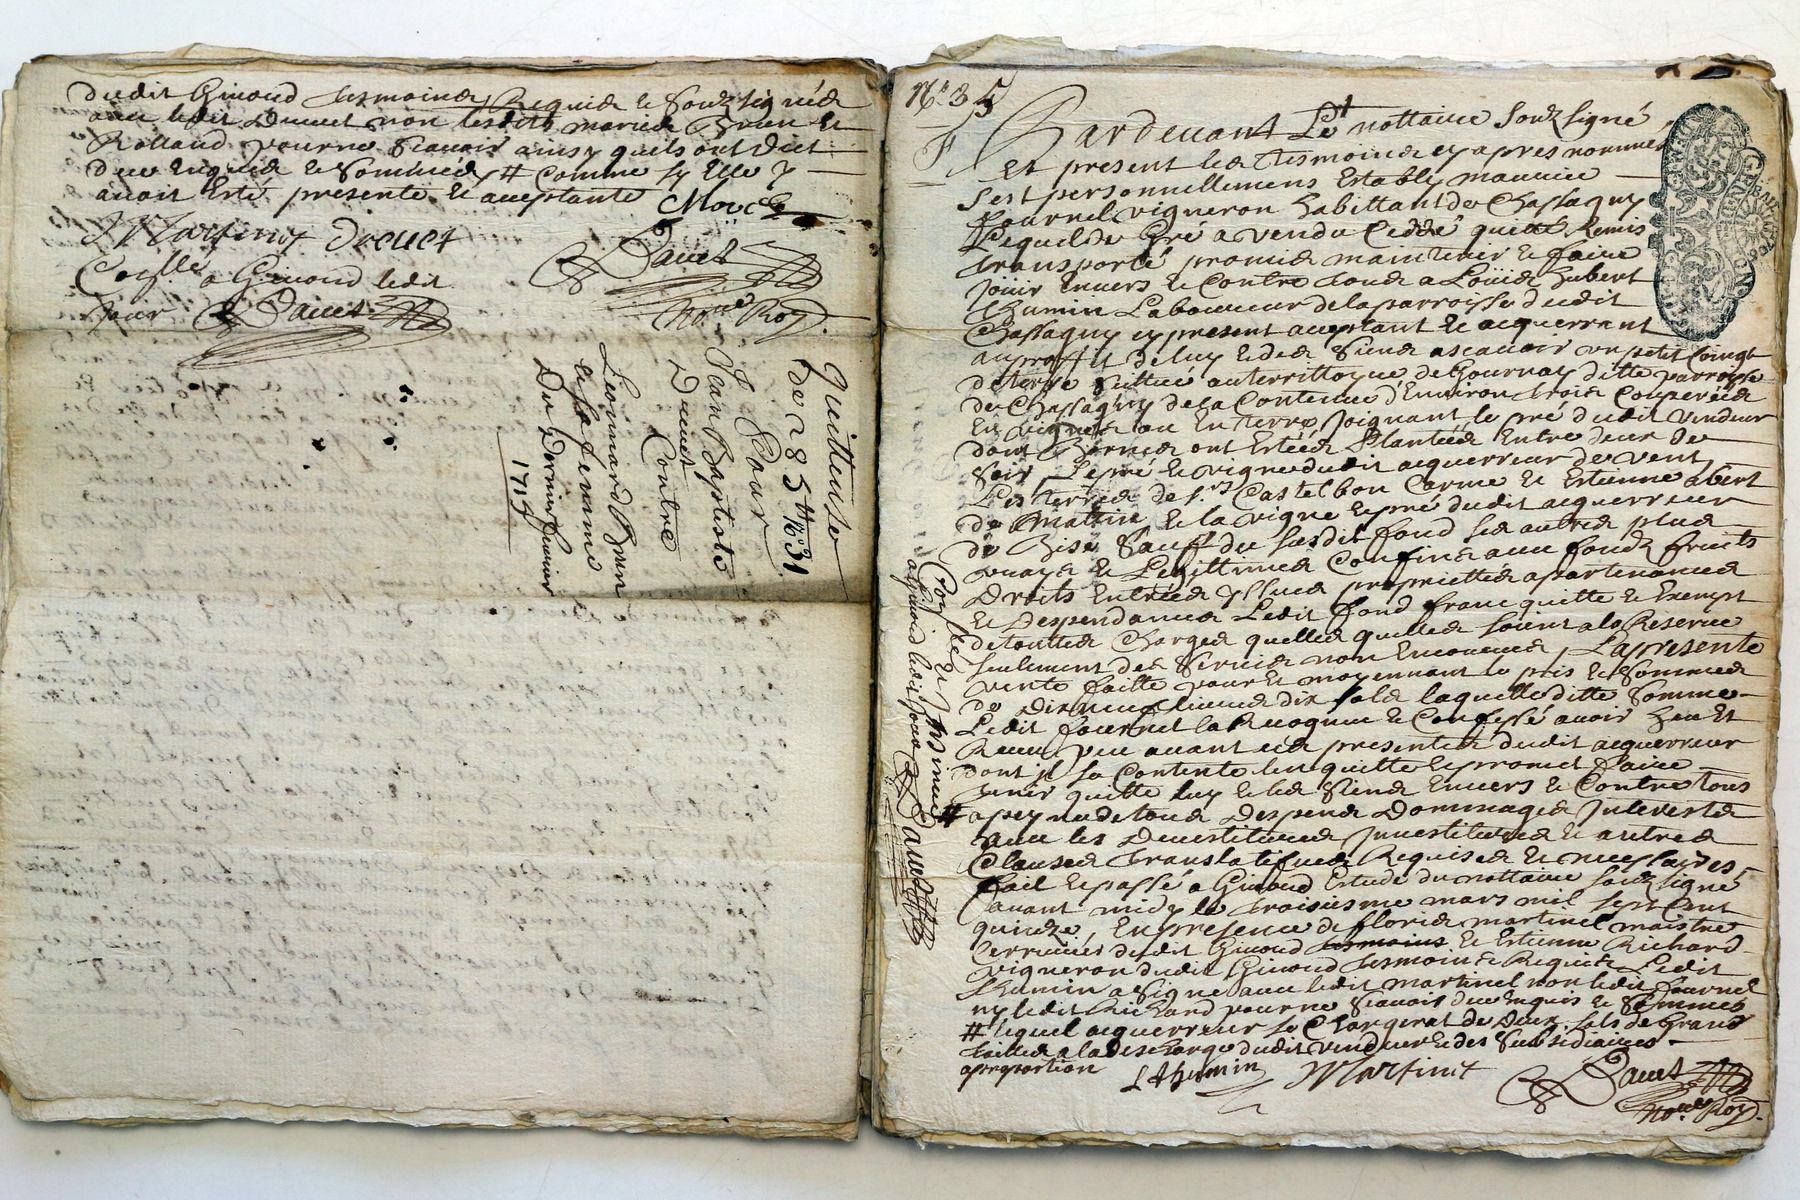 dudit Givord tesmoinsˌ Requis et Soubz signés
avec ledit Drevet non lesdits mariés Brun et
Rolland pour ne scavoir ainsy quils ont dict
deux Enquis et Sommésˌ # Comme sy Elle y
avoit Esté presente et acceptante
Martiniˌ Drevet
Davest
no.re Roy.
Coᵉˡˡᵉ a Givord ledit
Jour Davest
Quittense
de 285 tt N° 31
Sr Pour
Jean Baptiste
Drevet
Contre
Leonnard Brun
et sa femme
Du Dernier fevrier
1715
N° 35
Pardevant Le nottaire Soubzsigné
Et present les tesmoins cy apres nommés
Sest personnellement Estably maurice
Fournel vigneron habittant de Chassagny
Lequel de Gré a vendu Ceddé quetté Remis
transporté promis maintenir et faire
Jouir Envers et Contre touts a Loüis hubert
thumin Laboureur de la parroisse dudit
Chassagny cy present acceptant et acquerrant
au proffit de luy et des siens ascavoir un petit Coing
de terre scittué au territtoyre de Gournay ditte parroisse
de Chassagny de la Contenue d'Environ trois Couperées
En vigne ou En terre, Joignant le pré dudit vendeur
dont Bornes ont Estées Plantées Entre deux de
Soir, Le pré et vigne dudit acquerreur de vent
Les terres de Srs Castelbon Carme et Estienne abert
de Mattin, et la vigne et pré dudit acquerreur
de Bise Sauf du susdit fond ses autres plus
vrays et Legittimes Confins avec fondz fruits
Droits Entrées yssues proprietés apartenances
et Despendances Ledit fond franc quitte et Exempt
de touttes Charges quelles quelles soient a la Reserve
seulement des Servis non Encourus, La presente
vente faitte pour Et moyennant le pris et Somme
de Dix neuf livres dix sols laquelle ditte Somme
Ledit fournel la Recognu et Confessé avoir heu Et
Receu peu avant ces presentes dudit acquerreur
dont jl sa Contente len quitte et promet faire
tenir quitte luy et les siens Envers et Contre tous
# a peyne de tous Despens Dommages Jnterests
avec les Devestitures Jnvestitures et autres
Clauses translatifves Requises et necessaires
fait et passé a Givord Estude du nottaire soubzsigné
avant midy le troisiesme mars mil sept Cent
quinze, En presence de florid martinet maistre
Serrurier dudit Givord tesmoins et Estienne Richard
vigneron dudit Givord tesmoins Requis Ledit
thumin a signé avec ledit martinet non ledit fournel
ny ledit Richard pour ne scavoir deux Enquis et Sommés
# lequel acquerreur se Chargerat de Deux sols de Grand
tailles a la descharge dudit vendeur et des Subsidiaires
a proportion L thumin Martinit Davest
no.re Roy.
a Givord ledit Jour Davest